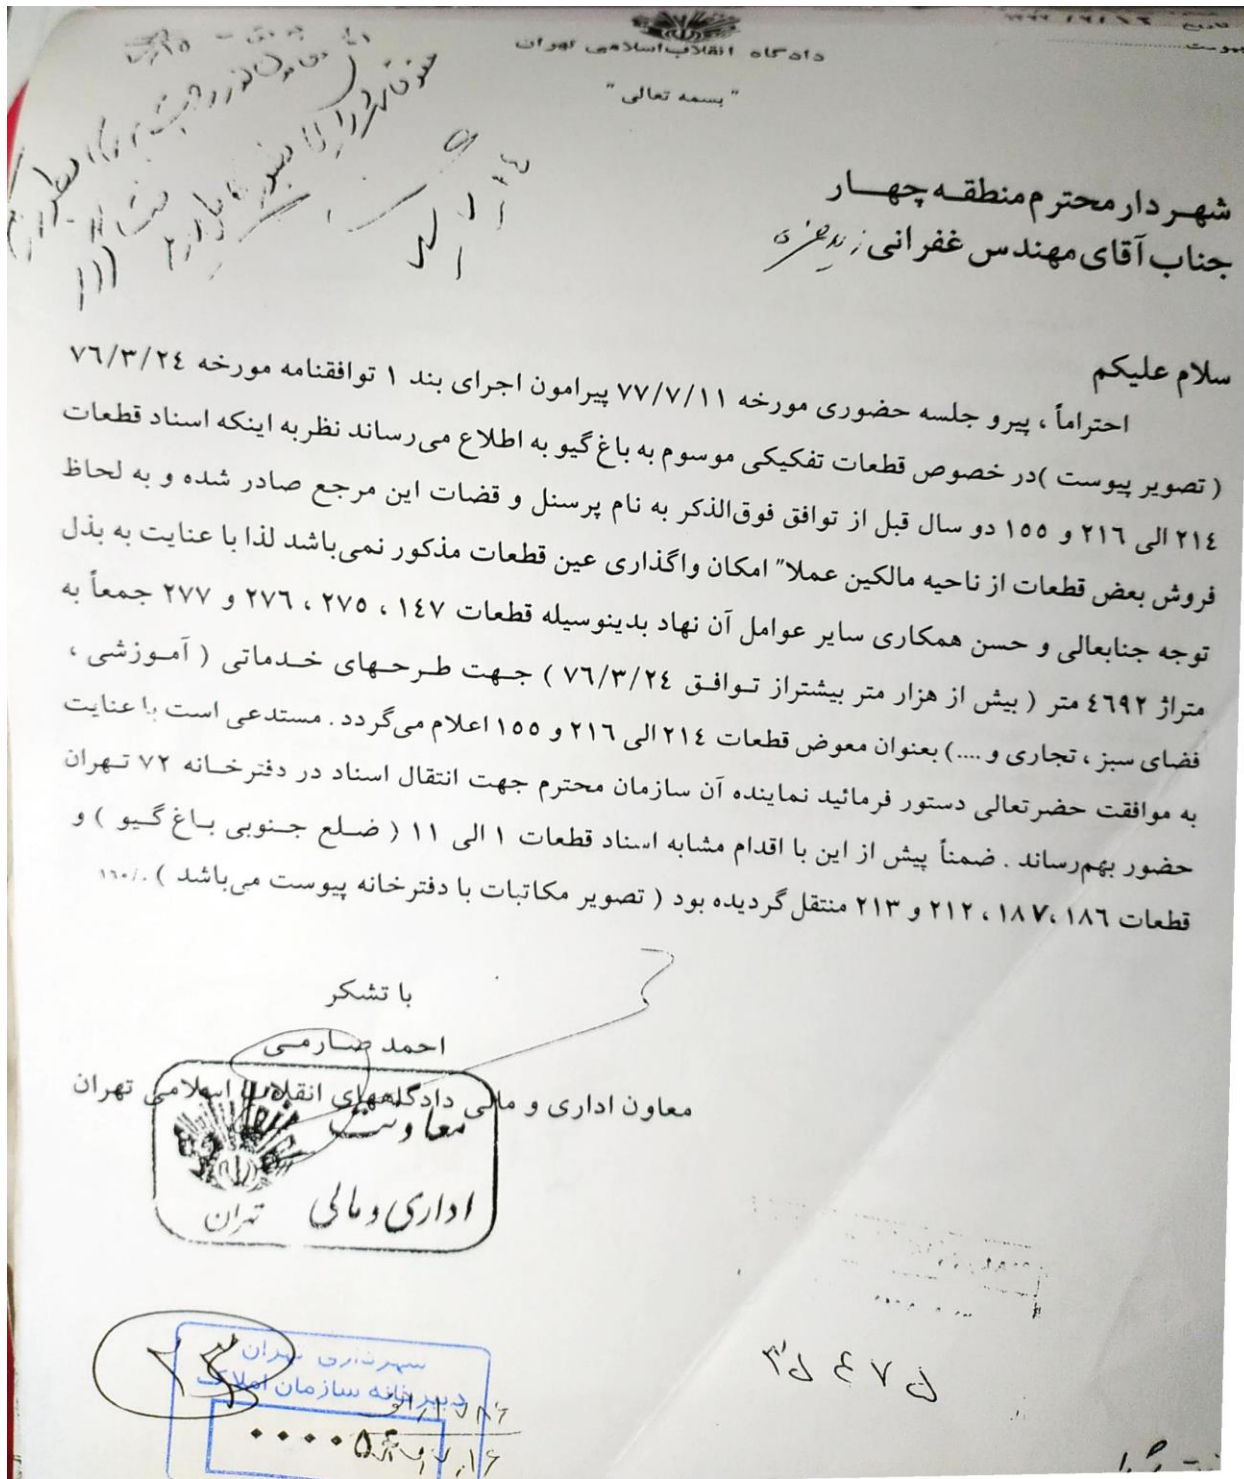 دادگاه انقلاب اسلامی تهران
"بسمه تعالی"
شهردار محترم منطقه چهار
جناب آقای مهندس غفرانی
سلام علیکم
احتراماً ، پیرو جلسه حضوری مورخه ۷۷/۷/۱۱ پیرامون اجرای بند ۱ توافقنامه مورخه ۷٦/۳/۲٤
( تصویر پیوست )در خصوص قطعات تفکیکی موسوم به باغ گیو به اطلاع می‌رساند نظربه اینکه اسناد قطعات
۲۱٤ الی ۲۱٦ و ۱۵۵ دو سال قبل از توافق فوق‌الذکر به نام پرسنل و قضات این مرجع صادر شده و به لحاظ
فروش بعض قطعات از ناحیه مالکین عملا" امکان واگذاری عین قطعات مذکور نمی‌باشد لذا با عنایت به بذل
توجه جنابعالی و حسن همکاری سایر عوامل آن نهاد بدینوسیله قطعات ۱٤۷ ، ۲۷۵ ، ۲۷٦ و ۲۷۷ جمعاً به
متراژ ٤٦۹۲ متر ( بیش از هزار متر بیشتراز توافق ۷٦/۳/۲٤ ) جهت طرحهای خدماتی ( آموزشی ،
فضای سبز ، تجاری و ....) بعنوان معوض قطعات ۲۱٤ الی ۲۱٦ و ۱۵۵ اعلام می‌گردد . مستدعی است با عنایت
به موافقت حضرتعالی دستور فرمائید نماینده آن سازمان محترم جهت انتقال اسناد در دفترخانه ۷۲ تهران
حضور بهم‌رساند . ضمناً پیش از این با اقدام مشابه اسناد قطعات ۱ الی ۱۱ ( ضلع جنوبی باغ گیو ) و
قطعات ۱۸٦ ،۱۸۷ ، ۲۱۲ و ۲۱۳ منتقل گردیده بود ( تصویر مکاتبات با دفترخانه پیوست می‌باشد ) ./۱٦۰
با تشکر
احمد صارمی
معاون اداری و مالی دادگاههای انقلاب اسلامی تهران
معاونت
اداری و مالی تهران
۲۳
شهرداری تهران
دبیرخانه سازمان املاک